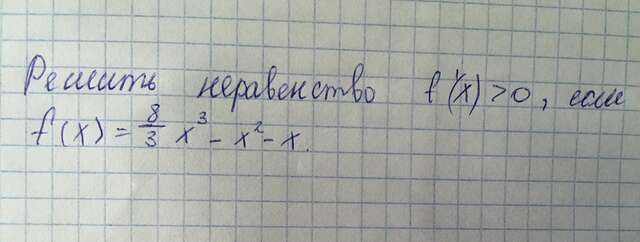 Решить неравенство f'(x) > 0, если
f(x) = 8/3 x³ - x² - x.